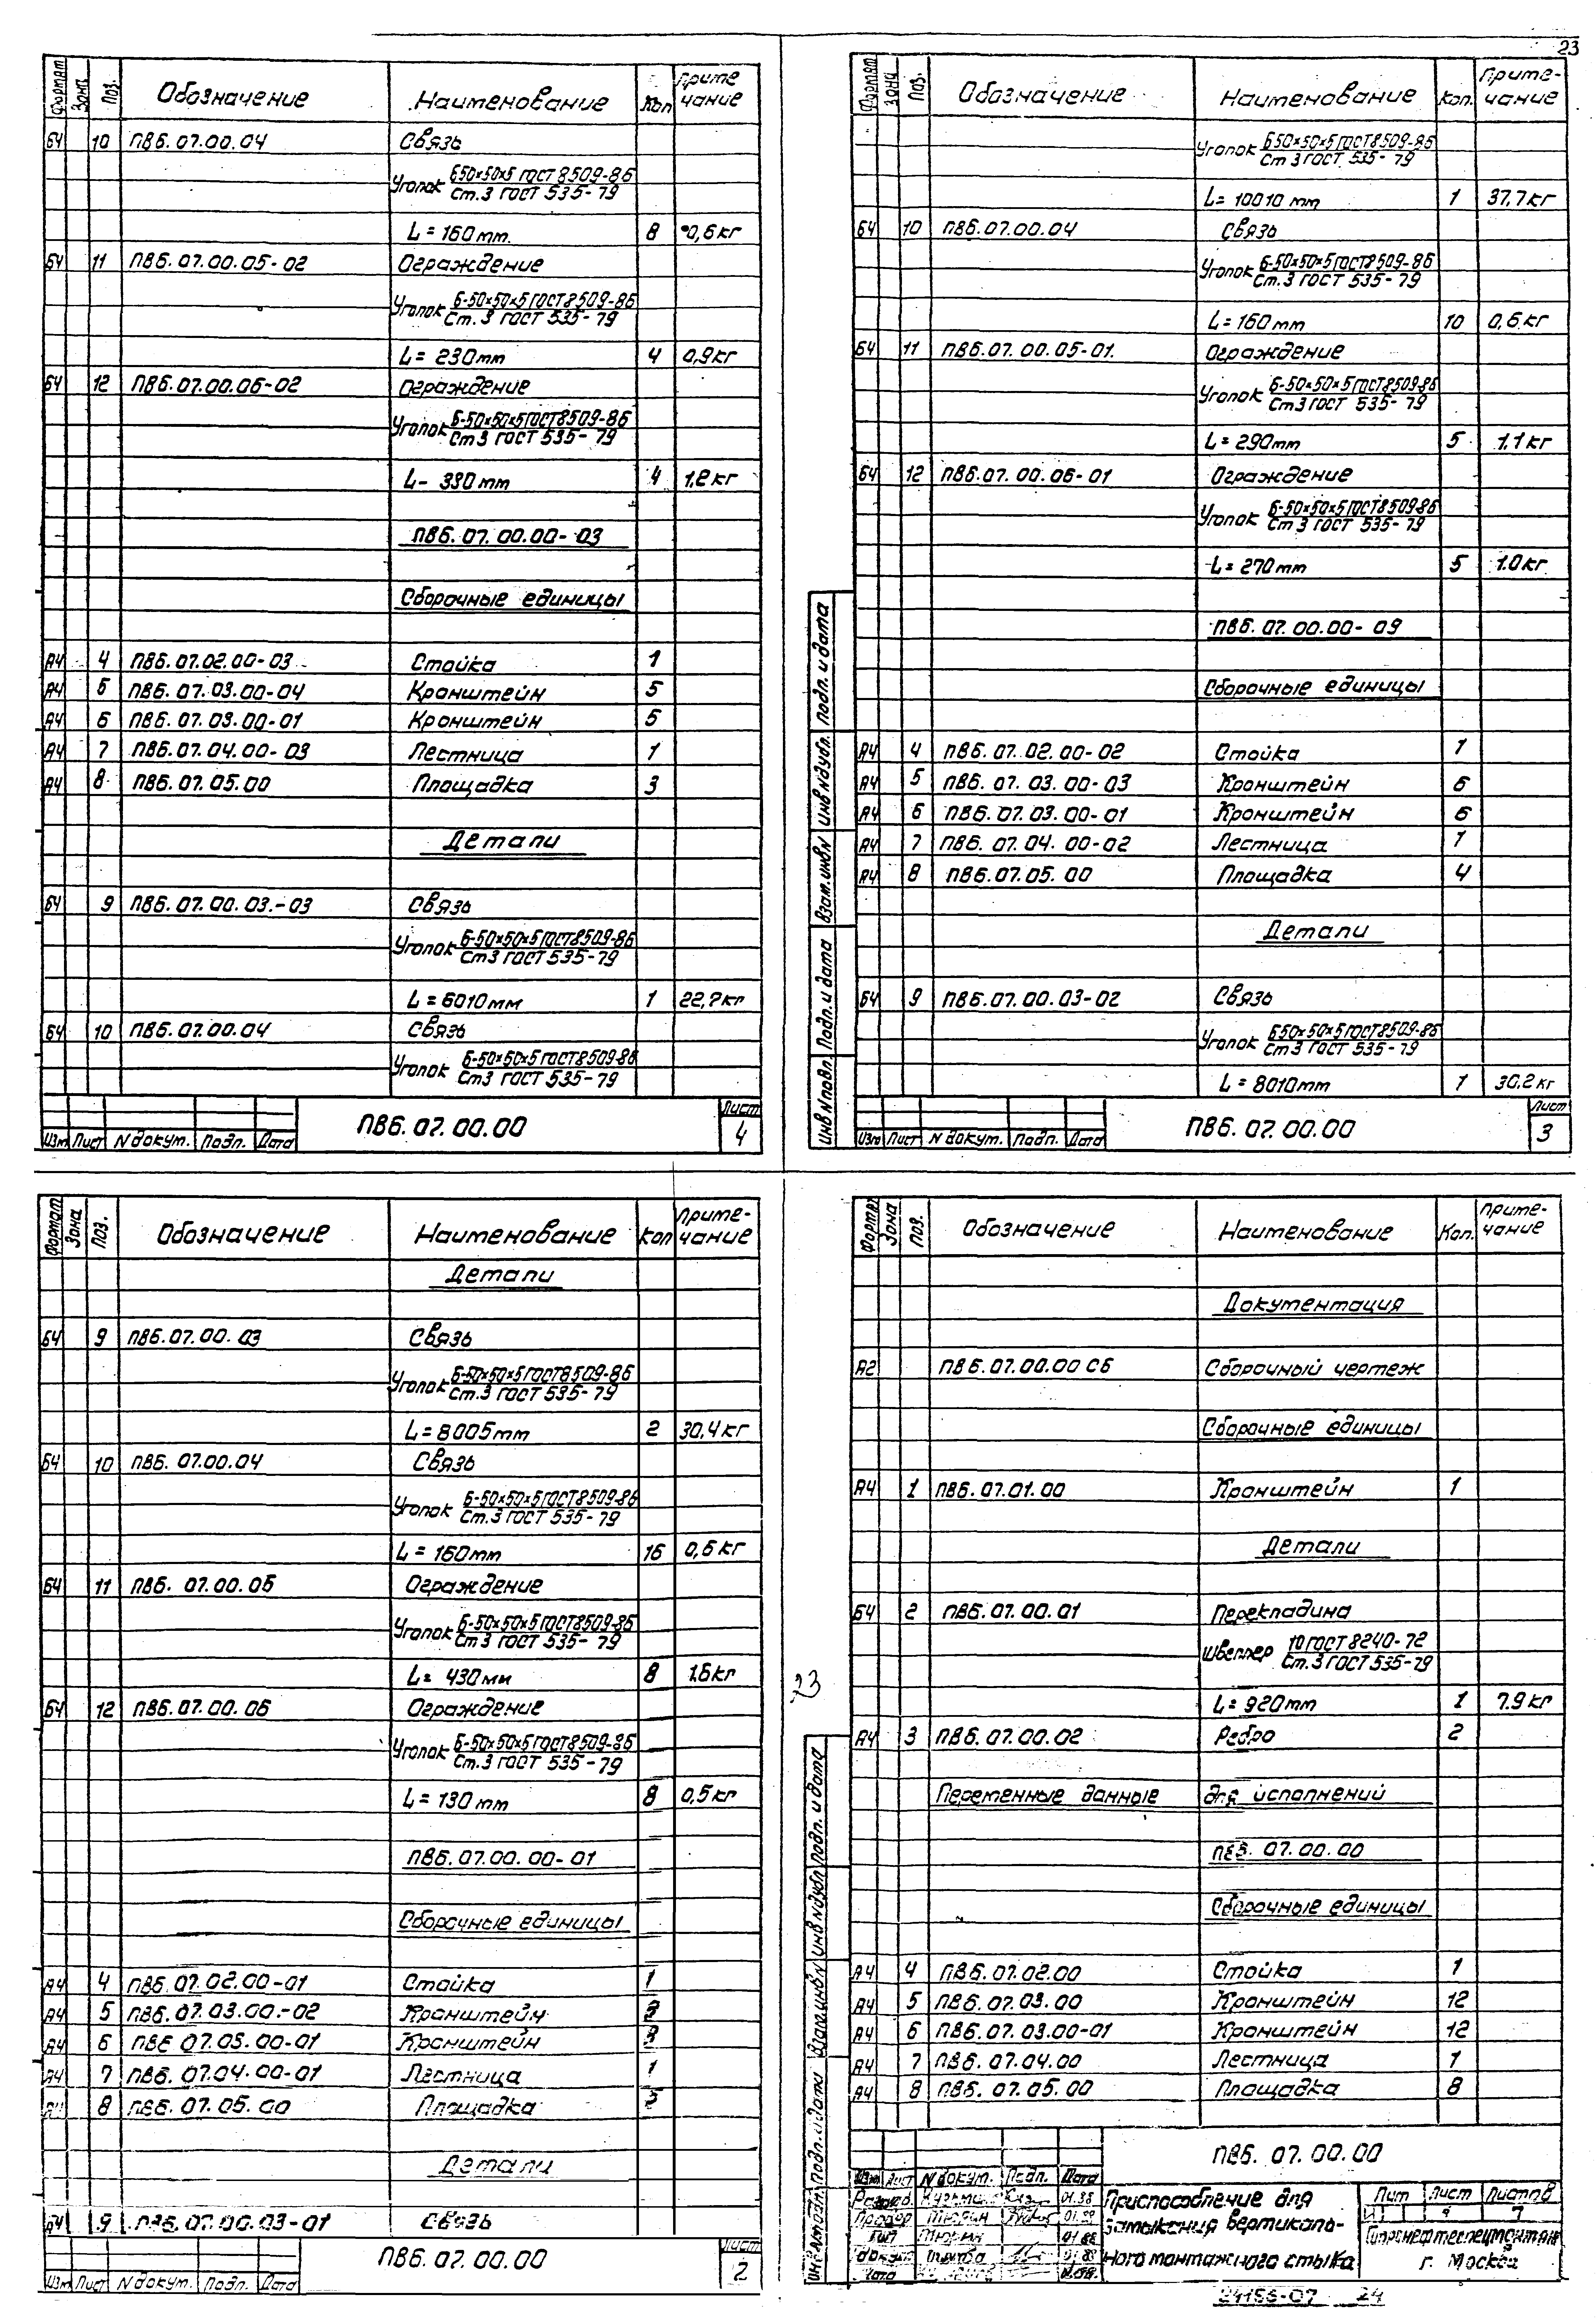 23
Формат Зона Поз. Обозначение Наименование Кол Приме-чание
БЧ 10 ПВ6.07.00.04 Связь
Уголок Б50×50×5 ГОСТ 8509-86
Ст.3 ГОСТ 535-79
L = 160mm. 8 0,6кг
БЧ 11 ПВ6.07.00.05-02 Ограждение
Уголок Б-50×50×5 ГОСТ 8509-86
Ст.3 ГОСТ 535-79
L = 230mm 4 0,9кг
БЧ 12 ПВ6.07.00.06-02 Ограждение
Уголок Б-50×50×5 ГОСТ 8509-86
Ст 3 ГОСТ 535-79
L- 330mm 4 1.2кг
ПВ6.07.00.00-03
Сборочные единицы
А4 4 ПВ6.07.02.00-03 Стойка 1
А4 5 ПВ6.07.03.00-04 Кронштейн 5
А4 6 ПВ6.07.03.00-01 Кронштейн 5
А4 7 ПВ6.07.04.00-03 Лестница 1
А4 8 ПВ6.07.05.00 Площадка 3
Детали
БЧ 9 ПВ6.07.00.03.-03 Связь
Уголок Б-50×50×5 ГОСТ 8509-86
Ст3 ГОСТ 535-79
L = 6010mm 1 22,7кг
БЧ 10 ПВ6.07.00.04 Связь
Уголок Б-50×50×5 ГОСТ 8509-86
Ст3 ГОСТ 535-79
Изм Лист N докум. Подп. Дата ПВ6.07.00.00 Лист 4
Формат Зона Поз. Обозначение Наименование Кол. Приме-чание
Уголок Б50×50×5 ГОСТ 8509-86
Ст 3 ГОСТ 535-79
L= 10010mm 1 37,7кг
БЧ 10 ПВ6.07.00.04 Связь
Уголок Б-50×50×5 ГОСТ 8509-86
Ст.3 ГОСТ 535-79
L = 160mm 10 0,6.кг
БЧ 11 ПВ6.07.00.05-01. Ограждение
Уголок Б-50×50×5 ГОСТ 8509-86
Ст3 ГОСТ 535-79
L = 290mm 5 1.1кг
БЧ 12 ПВ6.07.00.06-01 Ограждение
Уголок Б-50×50×5 ГОСТ 8509-86
Ст 3 ГОСТ 535-79
L = 270mm 5 1.0кг
ПВ6.07.00.00-09
Сборочные единицы
А4 4 ПВ6.07.02.00-02 Стойка 1
А4 5 ПВ6.07.03.00-03 Кронштейн 6
А4 6 ПВ6.07.03.00-01 Кронштейн 6
А4 7 ПВ6.07.04.00-02 Лестница 1
А4 8 ПВ6.07.05.00 Площадка 4
Детали
БЧ 9 ПВ6.07.00.03-02 Связь
Уголок Б50×50×5 ГОСТ 8509-86
Ст 3 ГОСТ 535-79
L = 8010mm 1 30,2кг
Инв N подл. Подп. и дата Взам. инв N Инв N дубл. Подп. и дата
Изм Лист N докум. Подп. Дата ПВ6.07.00.00 Лист 3
Формат Зона Поз. Обозначение Наименование Кол Приме-чание
Детали
БЧ 9 ПВ6.07.00.03 Связь
Уголок Б-50×50×5 ГОСТ 8509-86
Ст.3 ГОСТ 535-79
L = 8005mm 2 30,4кг
БЧ 10 ПВ6.07.00.04 Связь
Уголок Б-50×50×5 ГОСТ 8509-86
Ст.3 ГОСТ 535-79
L = 160mm 16 0,6кг
БЧ 11 ПВ6.07.00.05 Ограждение
Уголок Б-50×50×5 ГОСТ 8509-86
Ст 3 ГОСТ 535-79
L= 430мм 8 1.6кг
БЧ 12 ПВ6.07.00.06 Ограждение
Уголок Б-50×50×5 ГОСТ 8509-86
Ст.3 ГОСТ 535-79
L = 130mm 8 0,5кг
ПВ6.07.00.00-01
Сборочные единицы
А4 4 ПВ6.07.02.00-01 Стойка 1
А4 5 ПВ6.07.03.00.-02 Кронштейн
А4 6 ПВ6 07.03.00-01 Кронштейн
А4 7 ПВ6.07.04.00-01 Лестница 1
А4 8 ПВ6.07.05.00 Площадка
Детали
БЧ 9 ПВ6.07.00.03-01 Связь
Изм Лист N докум. Подп. Дата ПВ6.07.00.00 Лист 2
23
Формат Зона Поз. Обозначение Наименование Кол. Приме-чание
Документация
А2 ПВ6.07.00.00 СБ Сборочный чертеж
Сборочные единицы
А4 1 ПВ6.07.01.00 Кронштейн 1
Детали
БЧ 2 ПВ6.07.00.01 Перекладина
Швеллер 10 ГОСТ 8240-72
Ст.3 ГОСТ 535-79
L = 920mm 1 7.9кг
А4 3 ПВ6.07.00.02 Ребро 2
Переменные данные для исполнений
ПВ6.07.00.00
Сборочные единицы
А4 4 ПВ6.07.02.00 Стойка 1
А4 5 ПВ6.07.03.00 Кронштейн 12
А4 6 ПВ6.07.03.00-01 Кронштейн 12
А4 7 ПВ6.07.04.00 Лестница 1
А4 8 ПВ6.07.05.00 Площадка 8
Подп. и дата Взам. инв N Инв N дубл Подп. и дата
ПВ6.07.00.00
Изм Лист N докум. Подп. Дата
Приспособление для замыкания вертикаль-ного монтажного стыка
Лит Лист Листов
7
Гипронефтеспецмонтаж
г. Москва
24156-07 24